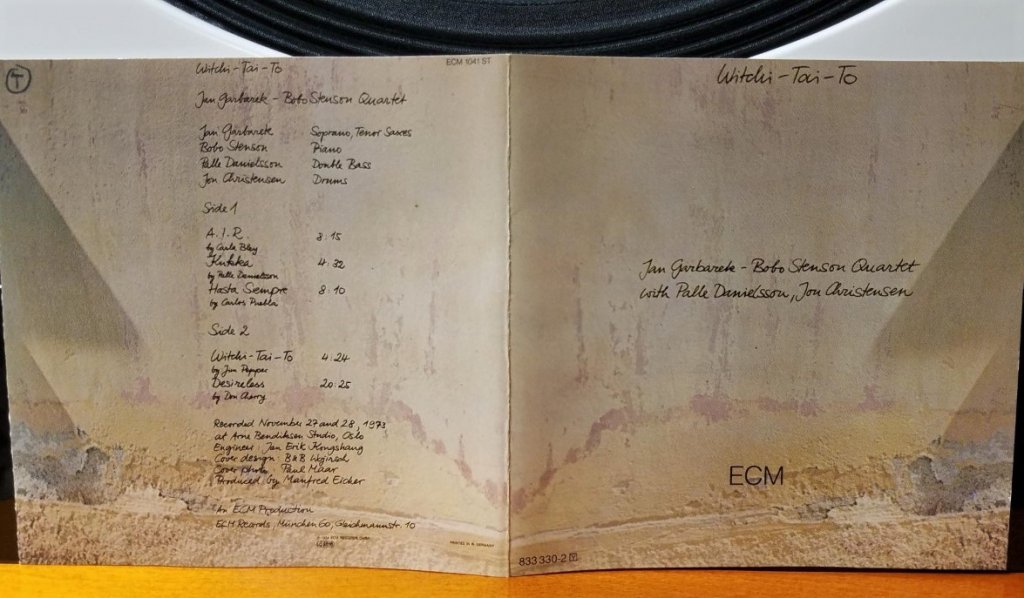 T
Witchi-Tai-To
ECM 1041 ST
Jan Garbarek - Bobo Stenson Quartet
Jan Garbarek Soprano, Tenor Saxes
Bobo Stenson Piano
Palle Danielsson Double Bass
Jon Christensen Drums
Side 1
A.I.R. 8:15
by Carla Bley
Kukka 4:32
by Palle Danielsson
Hasta Siempre 8:10
by Carlos Puebla
Side 2
Witchi-Tai-To 4:24
by Jim Pepper
Desireless 20:25
by Don Cherry
Recorded November 27 and 28, 1973
at Arne Bendiksen Studio, Oslo
Engineer: Jan Erik Kongshaug
Cover design: B&B Wojirsch
Cover photo: Paul Maar
Produced by Manfred Eicher
An ECM Production
ECM Records, München 60, Gleichmannstr. 10
PRINTED IN W. GERMANY
Witchi-Tai-To
Jan Garbarek - Bobo Stenson Quartet
with Palle Danielsson, Jon Christensen
ECM
833 330-2